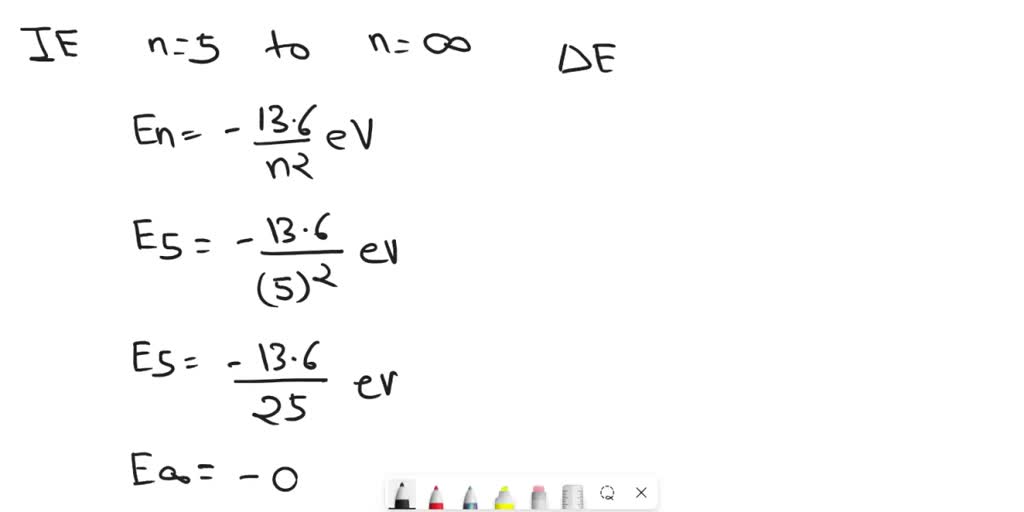 IE n=5 to n=∞ ΔE
En= - 13.6/n2 eV
E5 = - 13.6/(5)² ev
E5 = - 13.6/25 ev
E∞= - 0